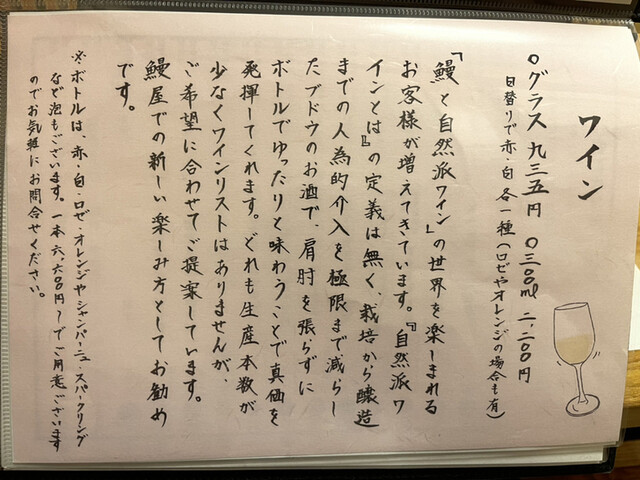 ワイン
○グラス 九三五円 ○三〇〇ml 二、二〇〇円
日替りで赤・白 各一種（ロゼやオレンジの場合も有）
「鰻と自然派ワイン」の世界を楽しまれる
お客様が増えてきています。『自然派ワ
インとは』の定義は無く、栽培から醸造
までの人為的介入を極限まで減らし
たブドウのお酒で、肩肘を張らずに
ボトルでゆったりと味わうことで真価を
発揮してくれます。どれも生産本数が
少なくワインリストはありませんが、
ご希望に合わせてご提案しています。
鰻屋での新しい楽しみ方としてお勧め
です。
※ボトルは、赤・白・ロゼ・オレンジやシャンパーニュ・スパークリング
など泡もございます。一本六、六〇〇円〜でご用意ございます
のでお気軽にお問合せください。